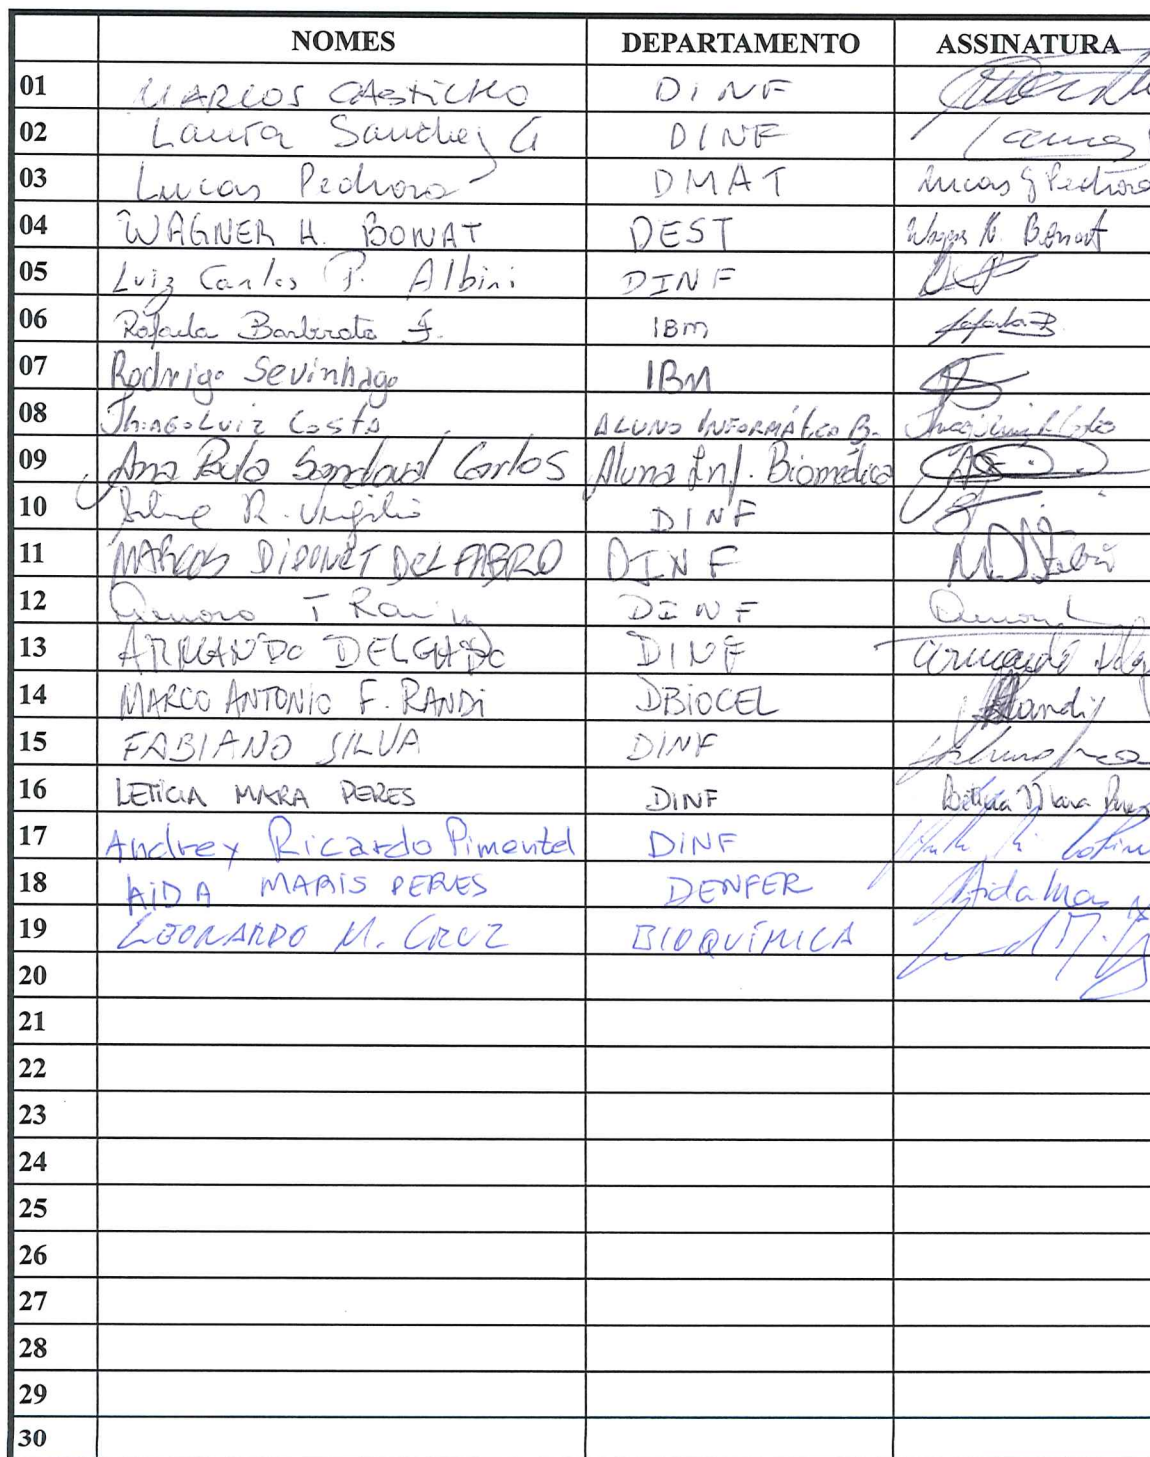 NOMES DEPARTAMENTO ASSINATURA
01 MARCOS CASTILHO DINF
02 Laura Sanchez G DINF Laura
03 Lucas Pedroso DMAT Lucas G Pedroso
04 WAGNER H. BONAT DEST Wagner H. Bonat
05 Luiz Carlos P. Albini DINF
06 Rafaela Barbirato F. IBM Rafaela B
07 Rodrigo Sevinhago IBM
08 Thiago Luiz Costa ALUNO INFORMÁTICA B.
09 Ana Paula Sandoval Carlos Aluna Inf. Biomédica
10 R. Virgilio DINF
11 MARCOS DIDONET DEL FABRO DINF
12 T DINF
13 ARMANDO DELGADO DINF Armando
14 MARCO ANTONIO F. RANDI DBIOCEL Randi
15 FABIANO SILVA DINF
16 LETICIA MARA PERES DINF Leticia Mara Peres
17 Andrey Ricardo Pimentel DINF
18 AIDA MARIS PERES DENFER Aida
19 LEONARDO M. CRUZ BIOQUÍMICA
20
21
22
23
24
25
26
27
28
29
30